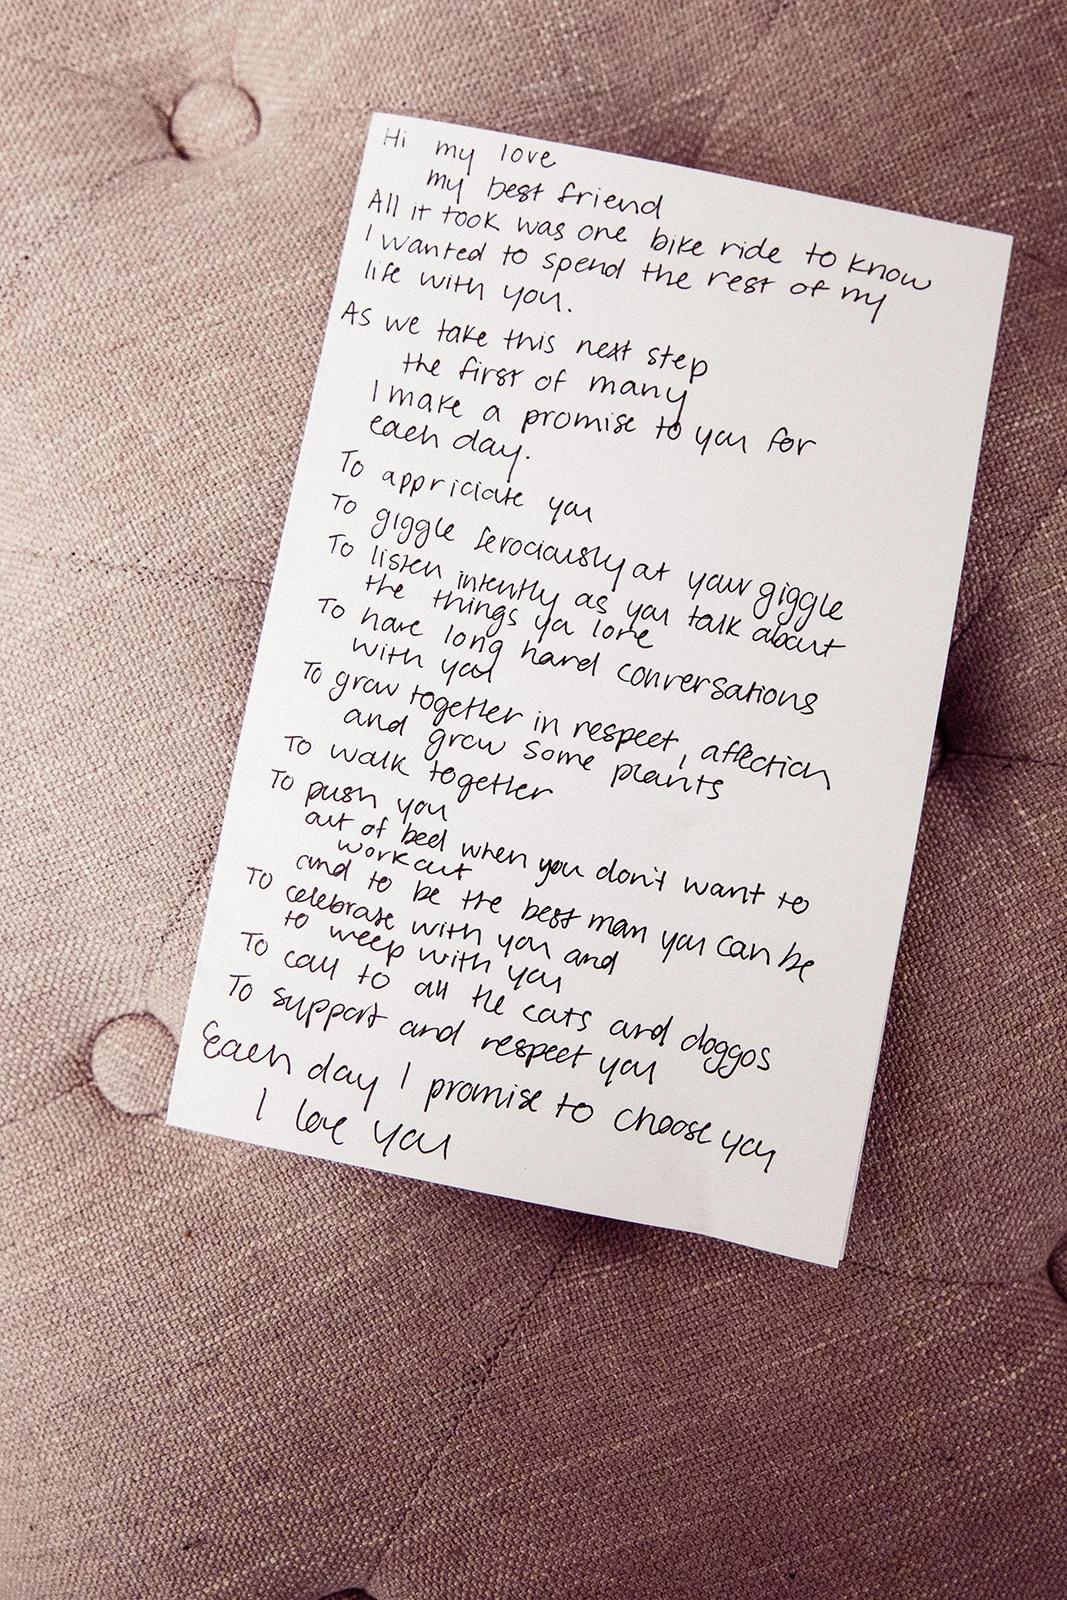 Hi my love
my best friend
All it took was one bike ride to know
I wanted to spend the rest of my
life with you.
As we take this next step
the first of many
I make a promise to you for
each day.
To appriciate you
To giggle ferociously at your giggle
To listen intently as you talk about
the things ya love
To have long hard conversations
with you
To grow together in respect, affection
and grow some plants
To walk together
To push you
out of bed when you don't want to
workout
and to be the best man you can be
To celebrate with you and
to weep with you
To call to all the cats and doggos
To support and respect you
Each day I promise to choose you
I love you